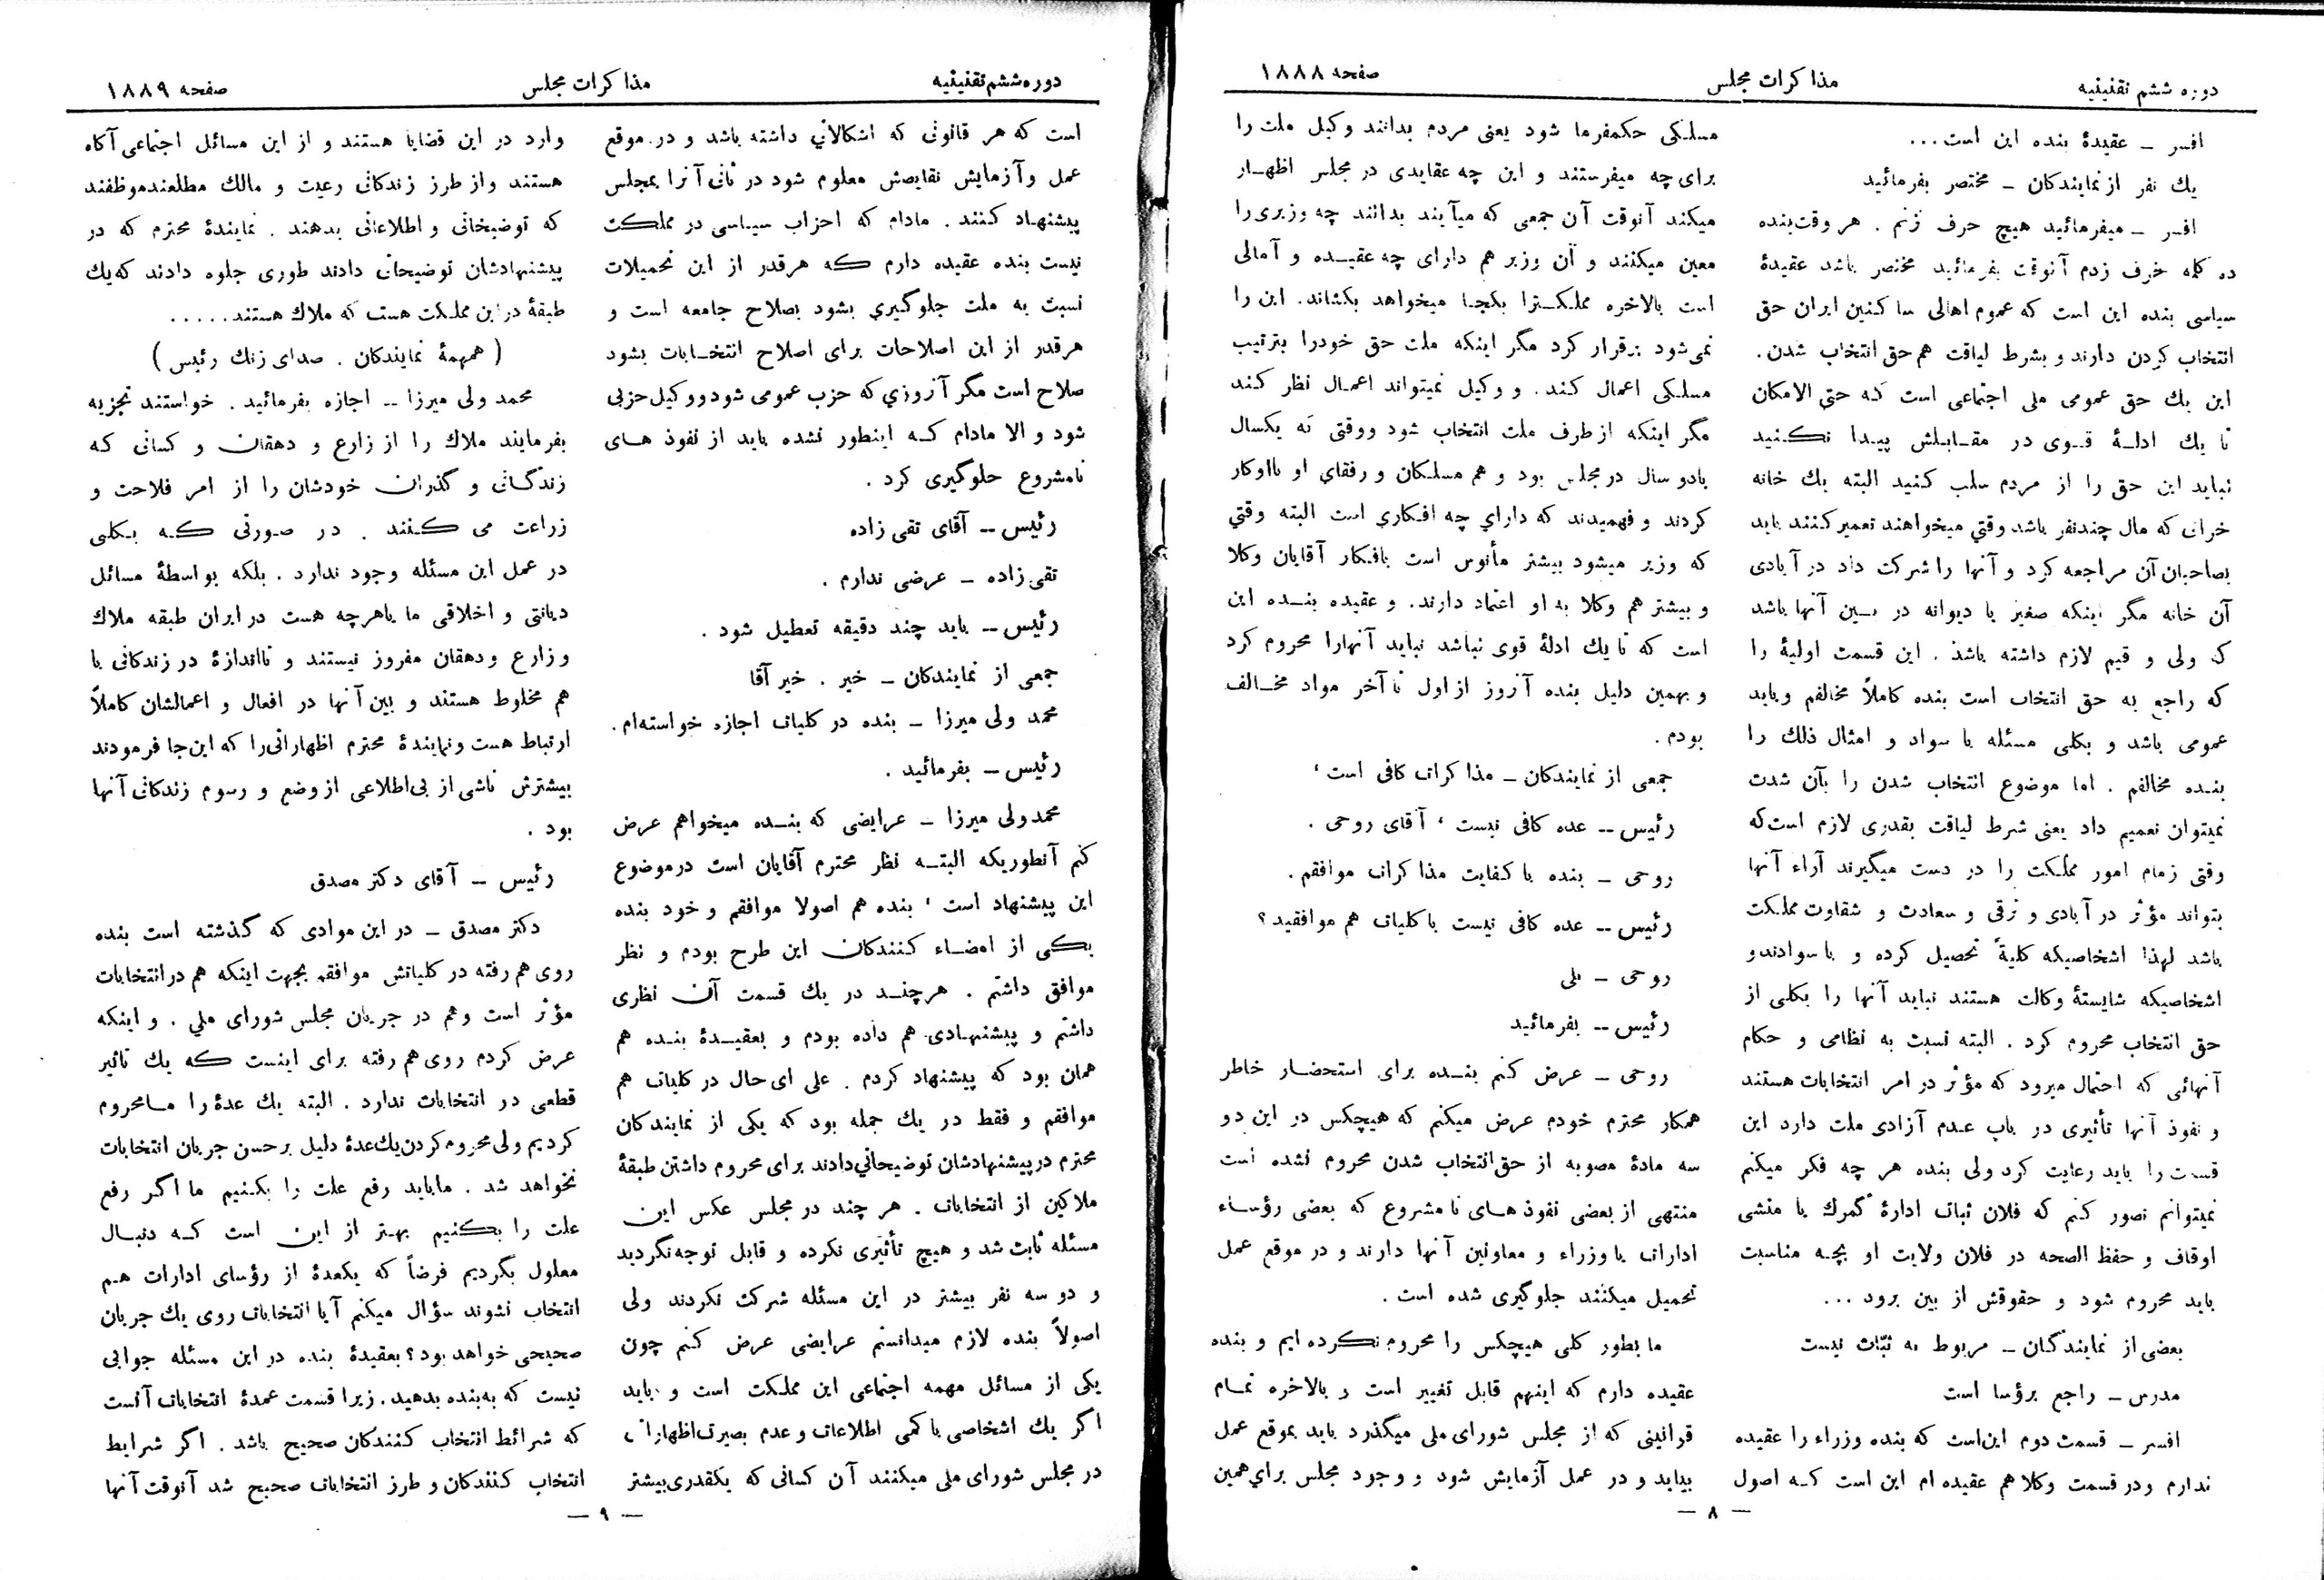 دوره ششم تقنینیه
مذاکرات مجلس
صفحه ۱۸۸۸
افسر ـ عقیدهٔ بنده این است...
یك نفر از نمایندکان ـ مختصر بفرمائید
افسر ـ میفرمائید هیچ حرف نزنم . هر وقت بنده
ده کله حرف زدم آنوقت بفرمائید مختصر باشد عقیدهٔ
سیاسی بنده این است که عموم اهالی سا کنین ایران حق
انتخاب کردن دارند و بشرط لیاقت هم حق انتخاب شدن .
این یك حق عمومی ملی اجتماعی است که حتی الامکان
تا یك ادلهٔ قوی در مقابلش پیدا نکنید
نباید این حق را از مردم سلب کنید البته یك خانه
خرابی که مال چند نفر باشد وقتی میخواهند تعمیر کنند باید
بصاحبان آن مراجعه کرد و آنها را شرکت داد در آبادی
آن خانه مگر اینکه صغیر یا دیوانه در بین آنها باشد
که ولی و قیم لازم داشته باشد . این قسمت اولیهٔ را
که راجع به حق انتخاب است بنده کاملاً مخالفم و باید
عمومی باشد و بکلی مسئله با سواد و امثال ذلك را
بنده مخالفم . اما موضوع انتخاب شدن را بآن شدت
نمیتوان تعمیم داد یعنی شرط لیاقت بقدری لازم است که
وقتی زمام امور مملکت را در دست میگیرند آراء آنها
بتواند مؤثر در آبادی و ترقی و سعادت و شقاوت مملکت
باشد لهذا اشخاصیکه کلیهٔ تحصیل کرده و با سوادند و
اشخاصیکه شایستهٔ وکالت هستند نباید آنها را بکلی از
حق انتخاب محروم کرد . البته نسبت به نظامی و حکام
آنهائی که احتمال میرود که مؤثر در امر انتخابات هستند
و نفوذ آنها تأثیری در باب عدم آزادی ملت دارد این
قسمت را باید رعایت کرد ولی بنده هر چه فکر میکنم
نمیتوانم تصور کنم که فلان ثبات ادارهٔ گمرك یا منشی
اوقاف و حفظ الصحه در فلان ولایت او بچه مناسبت
باید محروم شود و حقوقش از بین برود ...
بعضی از نمایندگان ـ مربوط به ثبّات نیست
مدرس ـ راجع برؤسا است
افسر ـ قسمت دوم این است که بنده وزراء را عقیده
ندارم و در قسمت وکلا هم عقیده ام این است که اصول
مسلکی حکمفرما شود یعنی مردم بدانند وکیل ملت را
برای چه میفرستند و این چه عقایدی در مجلس اظهار
میکند آنوقت آن جمعی که میآیند بدانند چه وزیری را
معین میکنند و آن وزیر هم دارای چه عقیده و آمالی
است بالاخره مملکترا بکجا میخواهد بکشاند. این را
نمی شود برقرار کرد مگر اینکه ملت حق خودرا بترتیب
مسلکی اعمال کند . و وکیل نمیتواند اعمال نظر کند
مگر اینکه از طرف ملت انتخاب شود ووقتی که یکسال
یادو سال در مجلس بود و هم مسلکان و رفقای او بااوکار
کردند و فهمیدند که دارای چه افکاری است البته وقتی
که وزیر میشود بیشتر مأنوس است بافکار آقایان وکلا
و بیشتر هم وکلا به او اعتماد دارند. و عقیده بنده این
است که تا یك ادلهٔ قوی نباشد نباید آنهارا محروم کرد
و بهمین دلیل بنده آنروز از اول تا آخر مواد مخالف
بودم .
جمعی از نمایندکان ـ مذاکرات کافی است ،
رئیس ـ عده کافی نیست ، آقای روحی .
روحی ـ بنده با کفایت مذاکرات موافقم .
رئیس ـ عده کافی نیست با کلیات هم موافقید ؟
روحی ـ بلی
رئیس ـ بفرمائید
روحی ـ عرض کنم بنده برای استحضار خاطر
همکار محترم خودم عرض میکنم که هیچکس در این دو
سه مادهٔ مصوبه از حق انتخاب شدن محروم نشده است
منتهی از بعضی نفوذ های نامشروع که بعضی رؤساء
ادارات یا وزراء و معاونین آنها دارند و در موقع عمل
تحمیل میکنند جلوگیری شده است .
ما بطور کلی هیچکس را محروم نکرده ایم و بنده
عقیده دارم که اینهم قابل تغییر است و بالاخره تمام
قوانینی که از مجلس شورای ملی میگذرد باید بموقع عمل
بیاید و در عمل آزمایش شود و وجود مجلس برای همین
— ۸ —
دوره ششم تقنینیه
مذاکرات مجلس
صفحه ۱۸۸۹
است که هر قانونی که اشکالاتی داشته باشد و در موقع
عمل و آزمایش نقایصش معلوم شود در ثانی آنرا بمجلس
پیشنهاد کنند . مادام که احزاب سیاسی در مملکت
نیست بنده عقیده دارم که هرقدر از این تحمیلات
نسبت به ملت جلوگیری بشود بصلاح جامعه است و
هرقدر از این اصلاحات برای اصلاح انتخابات بشود
صلاح است مگر آنروزی که حزب عمومی شود ووکیل حزبی
شود و الا مادام که اینطور نشده باید از نفوذ های
نامشروع جلوگیری کرد .
رئیس ـ آقای تقی زاده
تقی زاده ـ عرضی ندارم .
رئیس ـ باید چند دقیقه تعطیل شود .
جمعی از نمایندکان ـ خیر . خیر آقا
محمد ولی میرزا ـ بنده در کلیات اجازه خواسته‌ام .
رئیس ـ بفرمائید .
محمدولی میرزا ـ عرایضی که بنده میخواهم عرض
کنم آنطوریکه البته نظر محترم آقایان است درموضوع
این پیشنهاد است ، بنده هم اصولا موافقم و خود بنده
یکی از امضاء کنندکان این طرح بودم و نظر
موافق داشتم . هرچند در یك قسمت آن نظری
داشتم و پیشنهادی هم داده بودم و بعقیدهٔ بنده هم
همان بود که پیشنهاد کردم . علی ای حال در کلیات هم
موافقم و فقط در یك جمله بود که یکی از نمایندکان
محترم در پیشنهادشان توضیحاتی دادند برای محروم داشتن طبقهٔ
ملاکین از انتخابات . هر چند در مجلس عکس این
مسئله ثابت شد و هیچ تأثیری نکرده و قابل توجه نگردید
و دو سه نفر بیشتر در این مسئله شرکت نکردند ولی
اصولاً بنده لازم میدانستم عرایضی عرض کنم چون
یکی از مسائل مهمه اجتماعی این مملکت است و باید
اگر یك اشخاصی با کمی اطلاعات و عدم بصیرت اظهاراتی
در مجلس شورای ملی میکنند آن کسانی که یکقدری بیشتر
وارد در این قضایا هستند و از این مسائل اجتماعی آکاه
هستند واز طرز زندکانی رعیت و مالك مطلعندموظفند
که توضیحاتی و اطلاعاتی بدهند . نمایندهٔ محترم که در
پیشنهادشان توضیحاتی دادند طوری جلوه دادند که یك
طبقهٔ در این مملکت هست که ملاك هستند .....
( همهمهٔ نمایندکان . صدای زنك رئیس )
محمد ولی میرزا ـ اجازه بفرمائید . خواستند تجزیه
بفرمایند ملاك را از زارع و دهقان و کسانی که
زندگانی و گذران خودشان را از امر فلاحت و
زراعت می کنند . در صورتی که بکلی
در عمل این مسئله وجود ندارد . بلکه بواسطهٔ مسائل
دیانتی و اخلاقی ما یاهرچه هست در ایران طبقه ملاك
و زارع ودهقان مفروز نیستند و تااندازهٔ در زندکانی با
هم مخلوط هستند و بین آنها در افعال و اعمالشان کاملاً
ارتباط هست ونمایندهٔ محترم اظهاراتی را که این جا فرمودند
بیشترش ناشی از بی اطلاعی از وضع و رسوم زندکانی آنها
بود .
رئیس ـ آقای دکتر مصدق
دکتر مصدق ـ در این موادی که گذشته است بنده
روی هم رفته در کلیاتش موافقم بجهت اینکه هم در انتخابات
مؤثر است وهم در جریان مجلس شورای ملی . و اینکه
عرض کردم روی هم رفته برای اینست که یك تاثیر
قطعی در انتخابات ندارد . البته یك عدهٔ را مامحروم
کردیم ولی محروم کردن یك عدهٔ دلیل بر حسن جریان انتخابات
نخواهد شد . ماباید رفع علت را بکنیم ما اگر رفع
علت را بکنیم بهتر از این است که دنبال
معلول بگردیم فرضاً که یکعدهٔ از رؤسای ادارات هم
انتخاب نشوند سؤال میکنم آیا انتخابات روی یك جریان
صحیحی خواهد بود؟ بعقیدهٔ بنده در این مسئله جوابی
نیست که به بنده بدهید. زیرا قسمت عمدهٔ انتخابات آنست
که شرائط انتخاب کنندکان صحیح باشد . اگر شرایط
انتخاب کنندکان و طرز انتخابات صحیح شد آنوقت آنها
— ۹ —